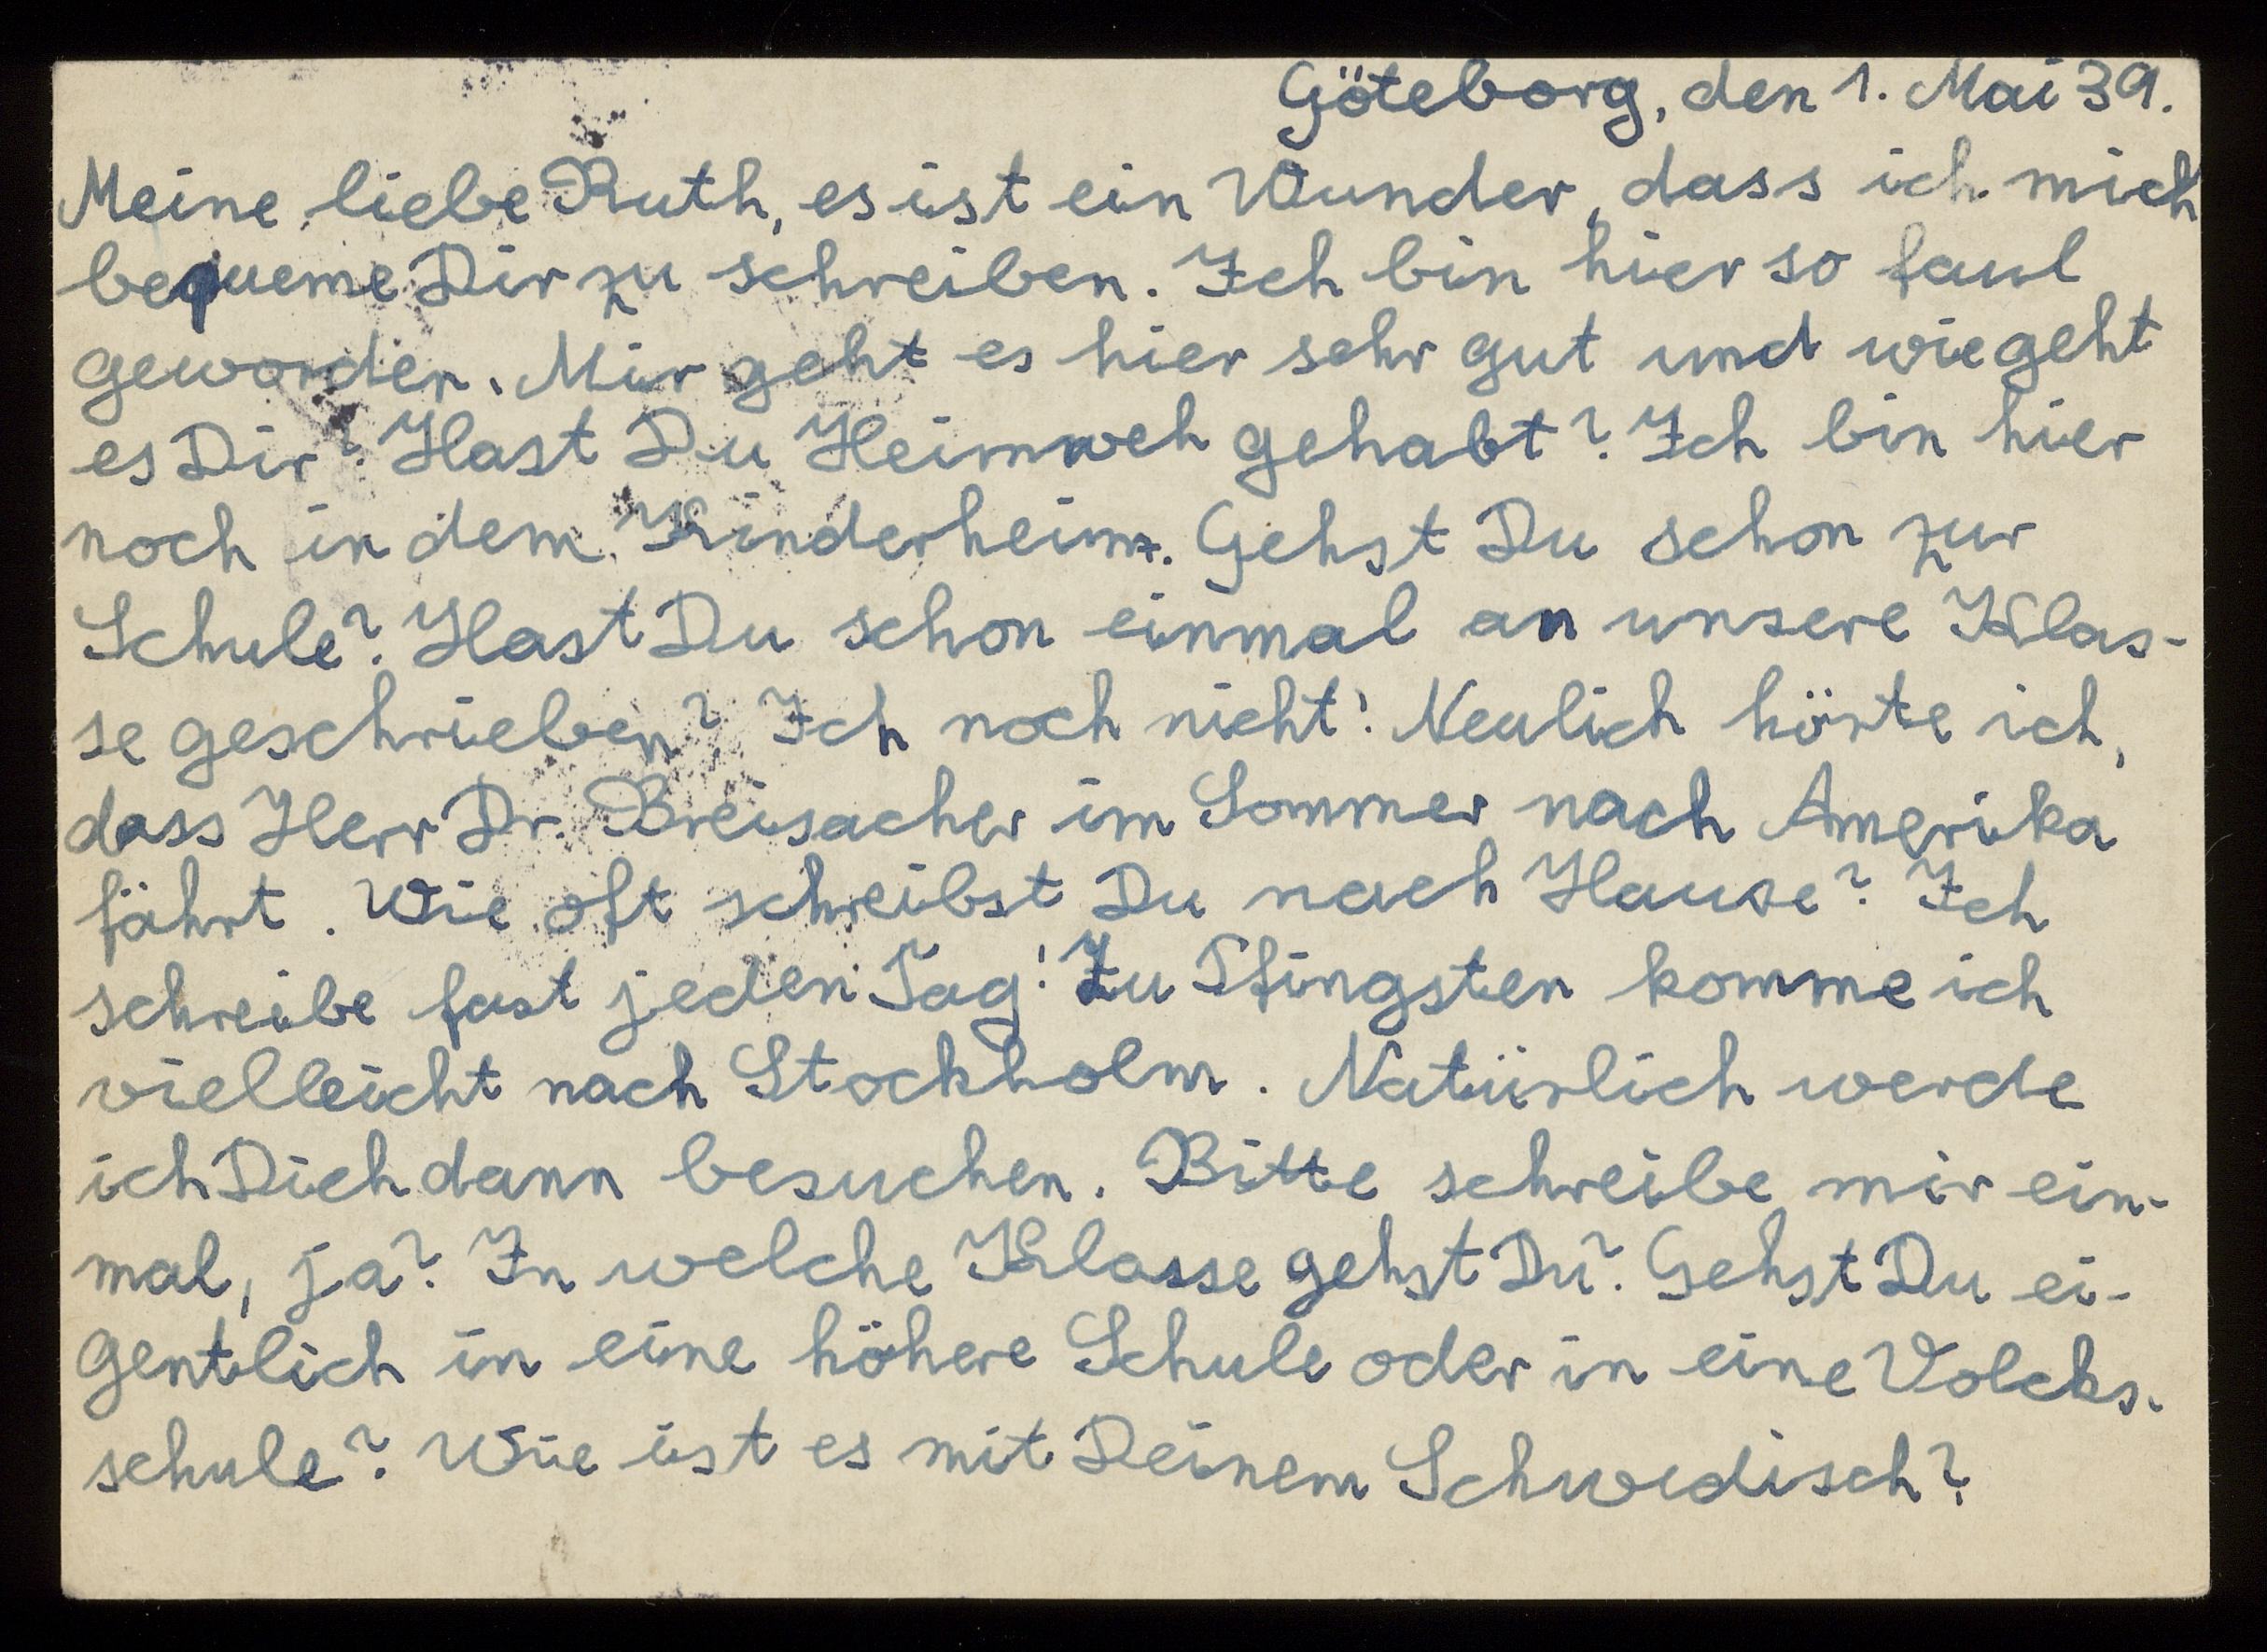 Göteborg, den 1. Mai 39.
Meine liebe Ruth, es ist ein Wunder, dass ich mich
bequeme Dir zu schreiben. Ich bin hier so faul
geworden. Mir geht es hier sehr gut und wie geht
es Dir? Hast Du Heimweh gehabt? Ich bin hier
noch in dem Kinderheim. Gehst Du schon zur
Schule? Hast Du schon einmal an unsere Klas-
se geschrieben? Ich noch nicht! Neulich hörte ich,
dass Herr Dr. Breisacher im Sommer nach Amerika
fährt. Wie oft schreibst Du nach Hause? Ich
schreibe fast jeden Tag! Zu Pfingsten komme ich
vielleicht nach Stockholm. Natürlich werde
ich Dich dann besuchen. Bitte schreibe mir ein-
mal, ja? In welche Klasse gehst Du? Gehst Du ei-
gentlich in eine höhere Schule oder in eine Volcks-
schule? Wie ist es mit Deinem Schwedisch?